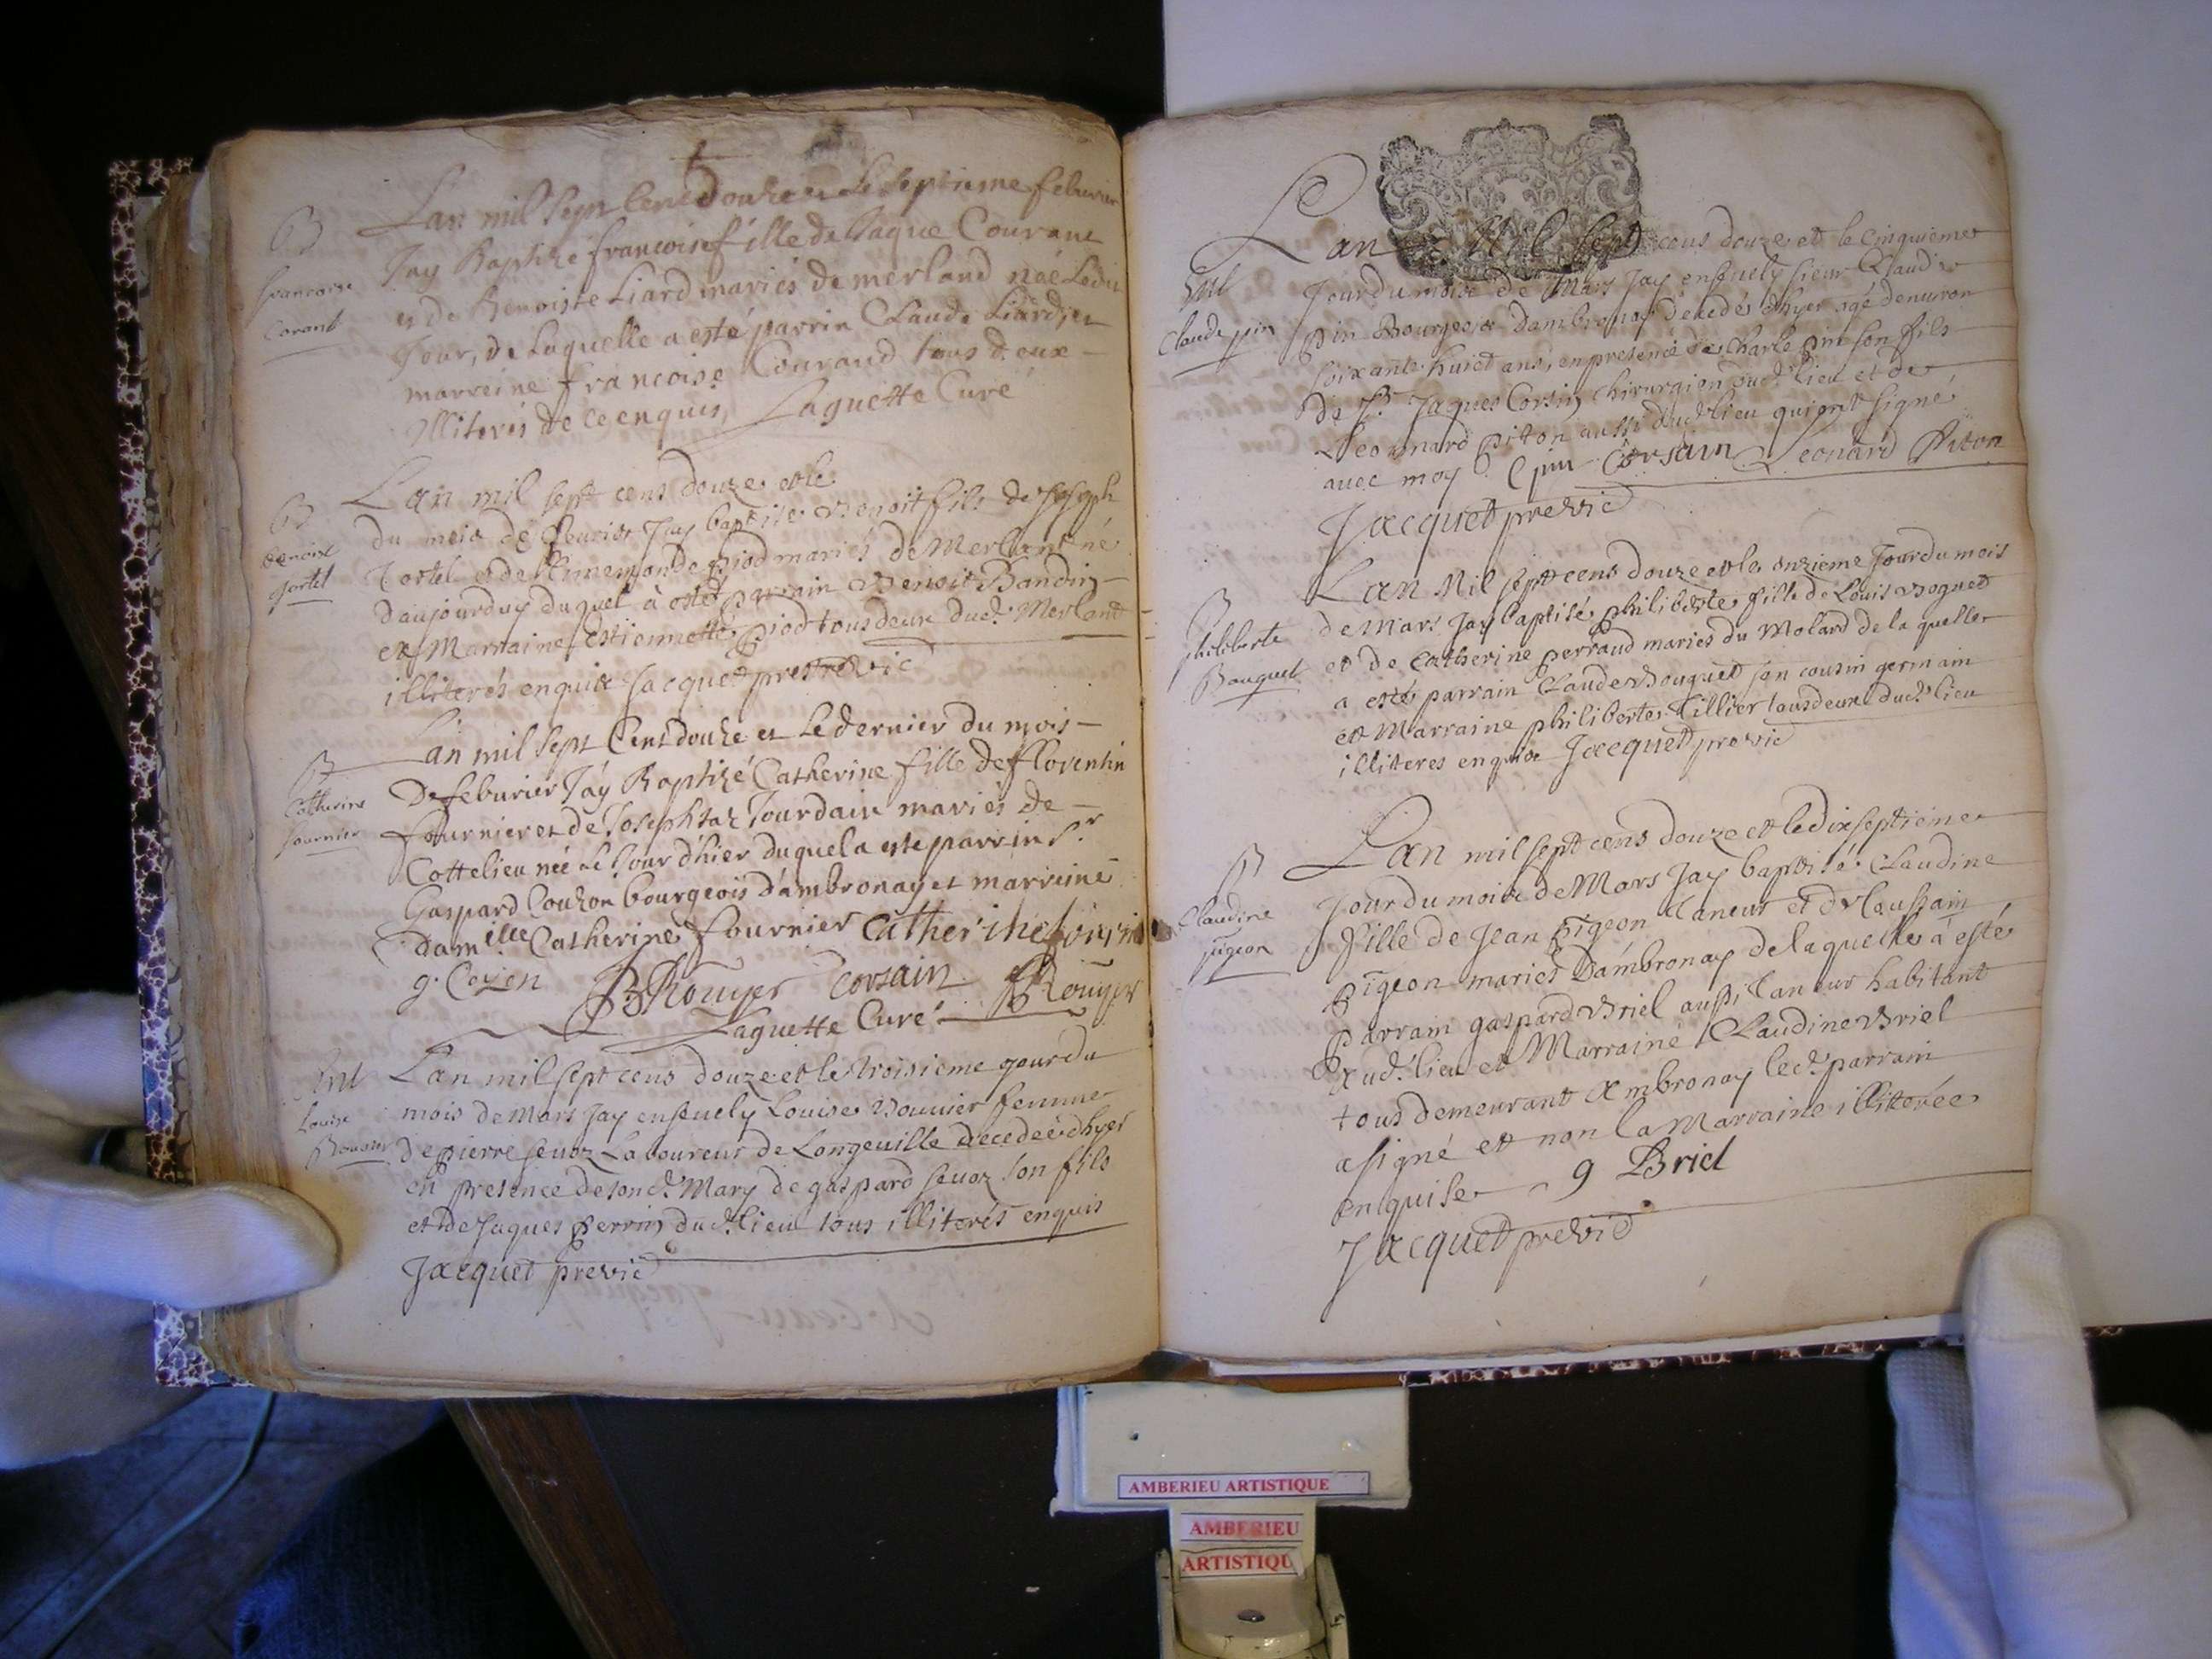 B
francoise
Corant
Lan mil Sept Cent douze et Le Septieme feburier
Jay Baptizé francoise fille de Jaque Courant
et de Benoiste Liard mariés de merland née Ledit
Jour, de Laquelle a esté parrin Claude Liard, et
marreine francoise Couraud tous deux
Illiterés de ce enquis, Laguette Curé
B
benoix
Jortel
Lan mil sept cens douze et le
du mois de feurier Jay baptisé Benoit fils de Joseph
Tortel et de piod mariés de Merlant né
daujourduy duquel à esté parrain Benoit Bandin
et Marraine Estiennette piod tous deux dud. Merlant
illiterés enquis Jacquet prestre vic
B
Catherine
fournier
Lan mil Sept Cent douze et Le dernier du mois
De feburier Jay Baptizé Catherine fille de fflorentin
fournier et de Jourdain mariés de
Cottelieu née Le Jour d'hier duquel a esté parrin Sr
Gaspard Couzon bourgeois d'ambronay et marreine
damille Catherine fournier Catherine
g. B Rouyer Corsain Rouyer
Laguette Curé
Ent
Louise
Bouuier
Lan mil sept cens douze et le troisieme jour du
mois de Mars Jay enseuely Louise Bouuier femme
de pierre seuoz Laboureur de Longeuille decedeé dhyer
en presence de son d. Mary de gaspard seuoz son fils
et de Jaques perrin dud. lieu tous illiterés enquis
Jacquet pre vic
Ent
Claude pin
Lan Mil sept cens douze et le Cinquieme
Jour du mois de Mars Jay enseuely sieur Claude
pin Bourgeois dambronay décedés dhyer agé denuiron
soixante huict ans, en presence de Charle pin son fils
de Sr. Jaques Corsin Chirurgien dud. lieu et de
Leonnard piton aussi dud. lieu qui ont signé
auec moy C pin Corsain Léonard Piton
Jacquet pre vic
B
philiberte
Bouquet
Lan Mil sept cens douze et le onzieme Jour du mois
de Mars Jay baptisé philiberte fille de Louis Boquet
et de Catherine perraud mariés du Molard de la quelle
a esté parrain Claude Bouquet son cousin germain
et Marraine philiberte Tillier tous deux dud. lieu
illiteres enquis Jacquet pre vic
B
Claudine
pigeon
Lan mil sept cens douze et le dix septieme
Jour du mois de Mars Jay baptisé Claudine
fille de Jean pigeon Taneur et de
pigeon mariés Dambronay de laquelle à esté
parrain gaspard Briel aussi Taneur habitant
aud. lieu et Marraine Claudine Briel
tous demeurant Ambronay led. parrain
a signé et non la Marraine illiterée
enquise g Briel
Jacquet pre vic
AMBERIEU ARTISTIQUE
AMBERIEU
ARTISTIQU